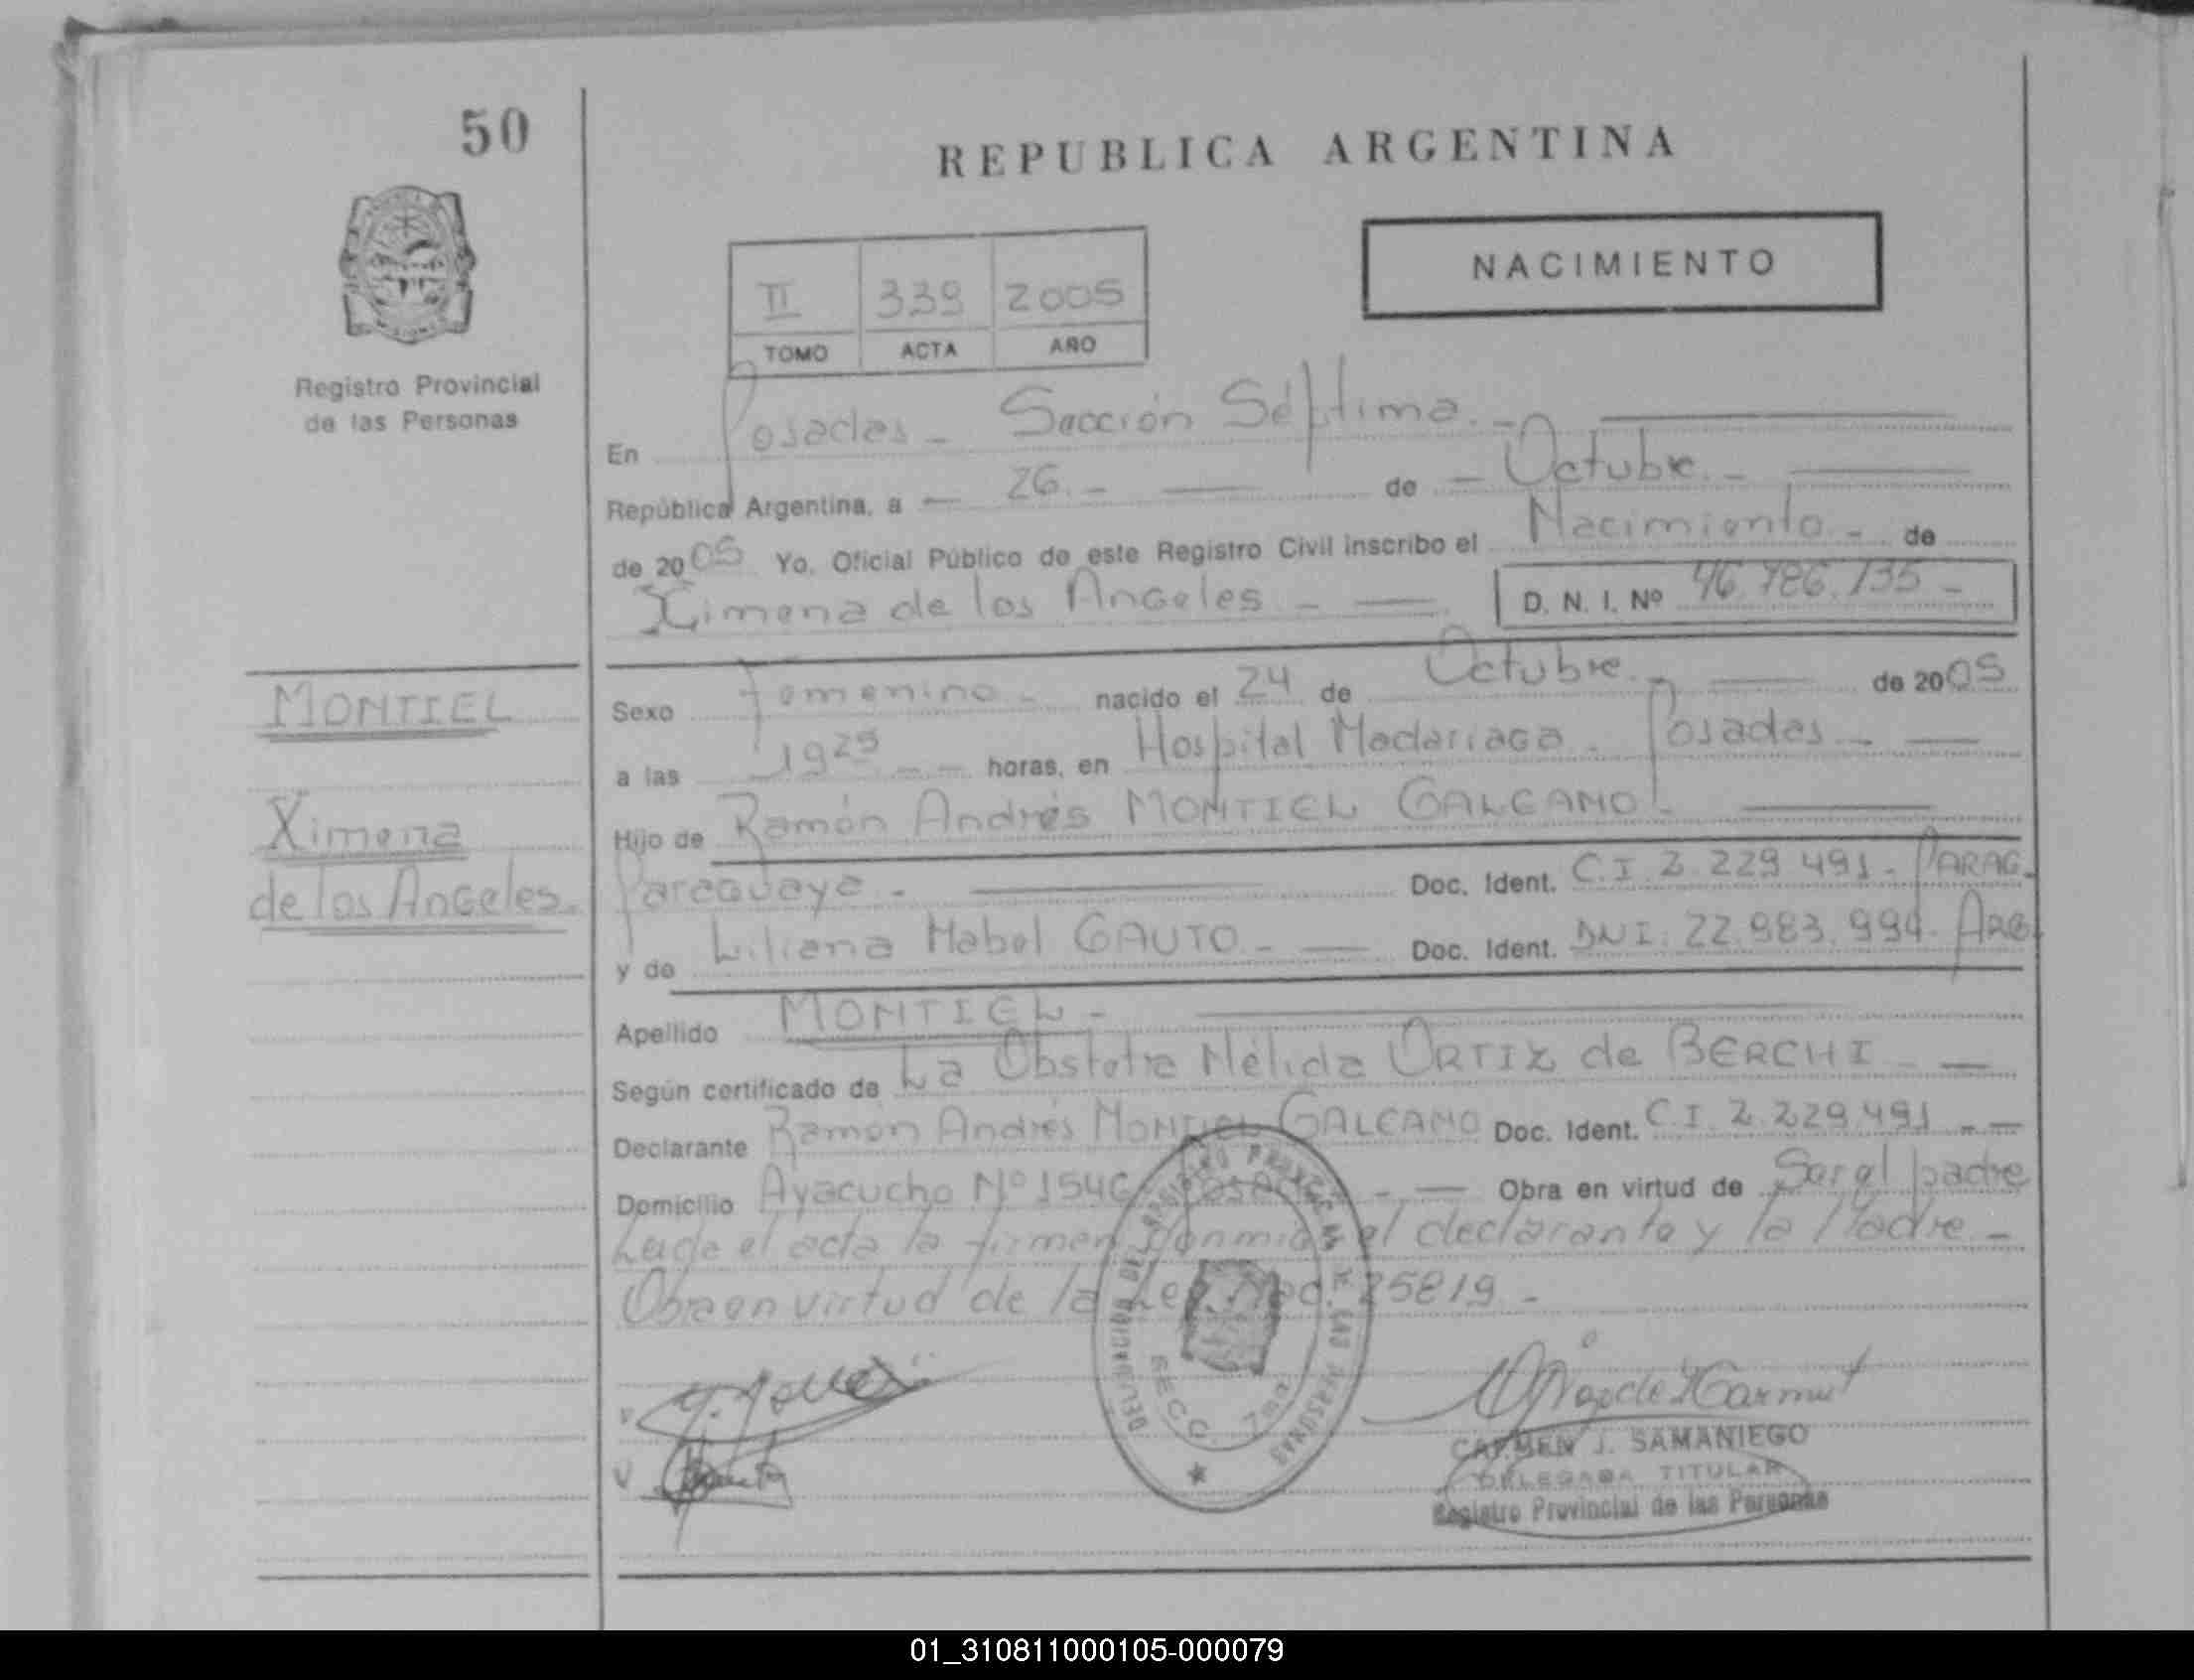 50
REPUBLICA ARGENTINA
NACIMIENTO
II 339 2005
TOMO ACTA AÑO
Registro Provincial
de las Personas
En Posadas - Sección Séptima. -
República Argentina, a - 26. - de - Octubre. -
de 2005 Yo, Oficial Público de este Registro Civil inscribo el Nacimiento - de
Ximena de los Angeles - D. N. I. Nº 46.786.135 -
MONTIEL
Ximena
de los Angeles.
Sexo femenino - nacido el 24 de Octubre - de 2005
a las 19 25 - - horas, en Hospital Madariaga - Posadas -
Hijo de Ramón Andrés MONTIEL GALEANO -
Paraguaya - Doc. Ident. C.I. 2.229.491 - PARAG.
y de Liliana Mabel GAUTO - Doc. Ident. DNI: 22.983.994. ARG
Apellido MONTIEL -
Según certificado de La Obstetra Nélida ORTIZ de BERCHI -
Declarante Ramón Andrés MONTIEL GALEANO Doc. Ident. C.I. 2.229.491 - -
Domicilio Ayacucho Nº 1540 Posadas - Obra en virtud de Ser el padre
Leida el acta la firman conmigo el declarante y la Madre -
Obra en virtud de la Ley Nac. 25819 -
DELEGACION DEL REGISTRO PROVINCIAL DE LAS PERSONAS
SECC. 7ma
CARMEN J. SAMANIEGO
DELEGADA TITULAR
Registro Provincial de las Personas
01_310811000105-000079